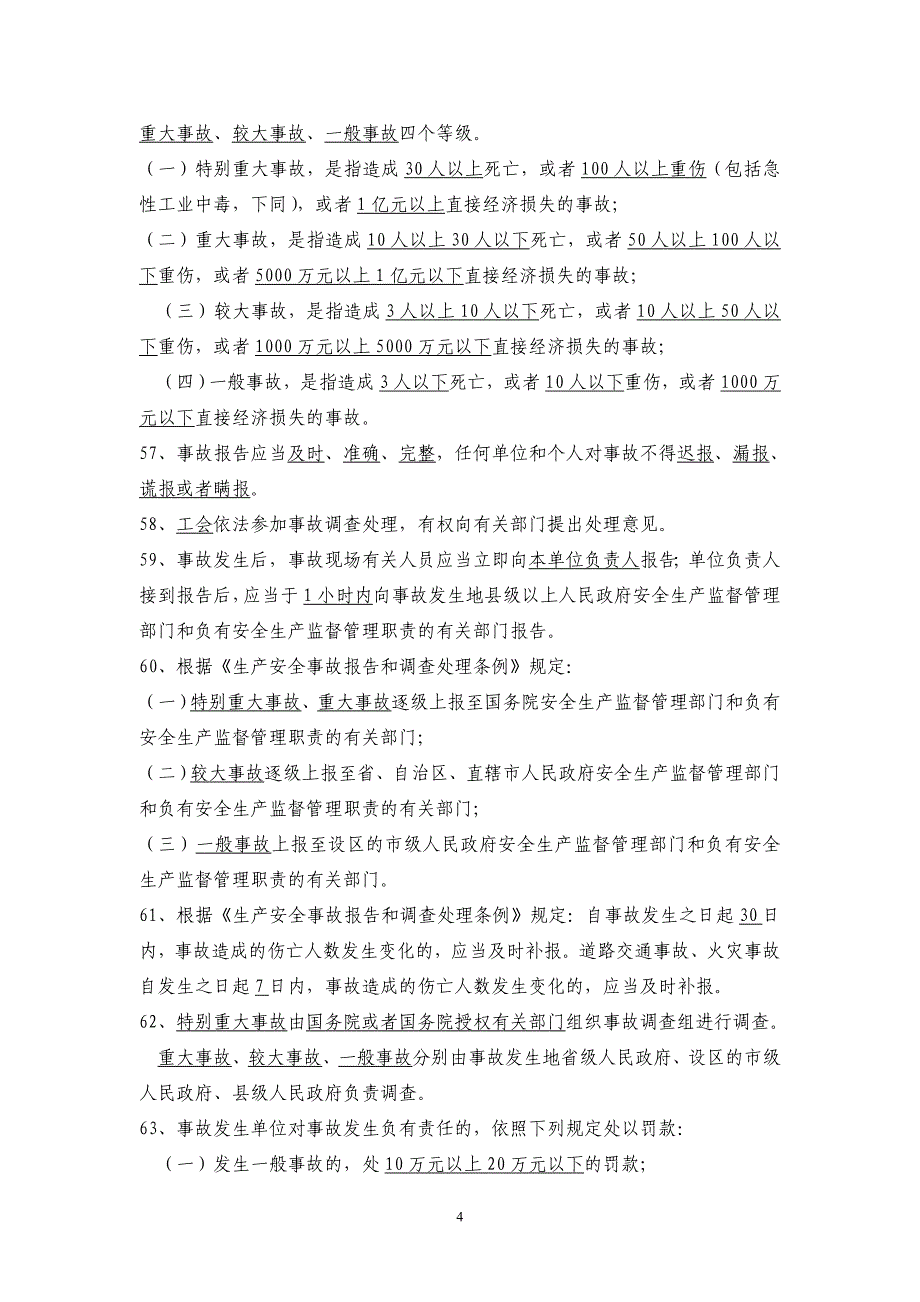 重大事故、较大事故、一般事故四个等级。
（一）特别重大事故，是指造成 30 人以上死亡，或者 100 人以上重伤（包括急
性工业中毒，下同），或者 1 亿元以上直接经济损失的事故；
（二）重大事故，是指造成 10 人以上 30 人以下死亡，或者 50 人以上 100 人以
下重伤，或者 5000 万元以上 1 亿元以下直接经济损失的事故；
（三）较大事故，是指造成 3 人以上 10 人以下死亡，或者 10 人以上 50 人以
下重伤，或者 1000 万元以上 5000 万元以下直接经济损失的事故；
（四）一般事故，是指造成 3 人以下死亡，或者 10 人以下重伤，或者 1000 万
元以下直接经济损失的事故。
57、事故报告应当及时、准确、完整，任何单位和个人对事故不得迟报、漏报、
谎报或者瞒报。
58、工会依法参加事故调查处理，有权向有关部门提出处理意见。
59、事故发生后，事故现场有关人员应当立即向本单位负责人报告；单位负责人
接到报告后，应当于 1 小时内向事故发生地县级以上人民政府安全生产监督管理
部门和负有安全生产监督管理职责的有关部门报告。
60、根据《生产安全事故报告和调查处理条例》规定：
（一）特别重大事故、重大事故逐级上报至国务院安全生产监督管理部门和负有
安全生产监督管理职责的有关部门；
（二）较大事故逐级上报至省、自治区、直辖市人民政府安全生产监督管理部门
和负有安全生产监督管理职责的有关部门；
（三）一般事故上报至设区的市级人民政府安全生产监督管理部门和负有安全
生产监督管理职责的有关部门。
61、根据《生产安全事故报告和调查处理条例》规定：自事故发生之日起 30 日
内，事故造成的伤亡人数发生变化的，应当及时补报。道路交通事故、火灾事故
自发生之日起 7 日内，事故造成的伤亡人数发生变化的，应当及时补报。
62、特别重大事故由国务院或者国务院授权有关部门组织事故调查组进行调查。
重大事故、较大事故、一般事故分别由事故发生地省级人民政府、设区的市级
人民政府、县级人民政府负责调查。
63、事故发生单位对事故发生负有责任的，依照下列规定处以罚款：
（一）发生一般事故的，处 10 万元以上 20 万元以下的罚款；
4